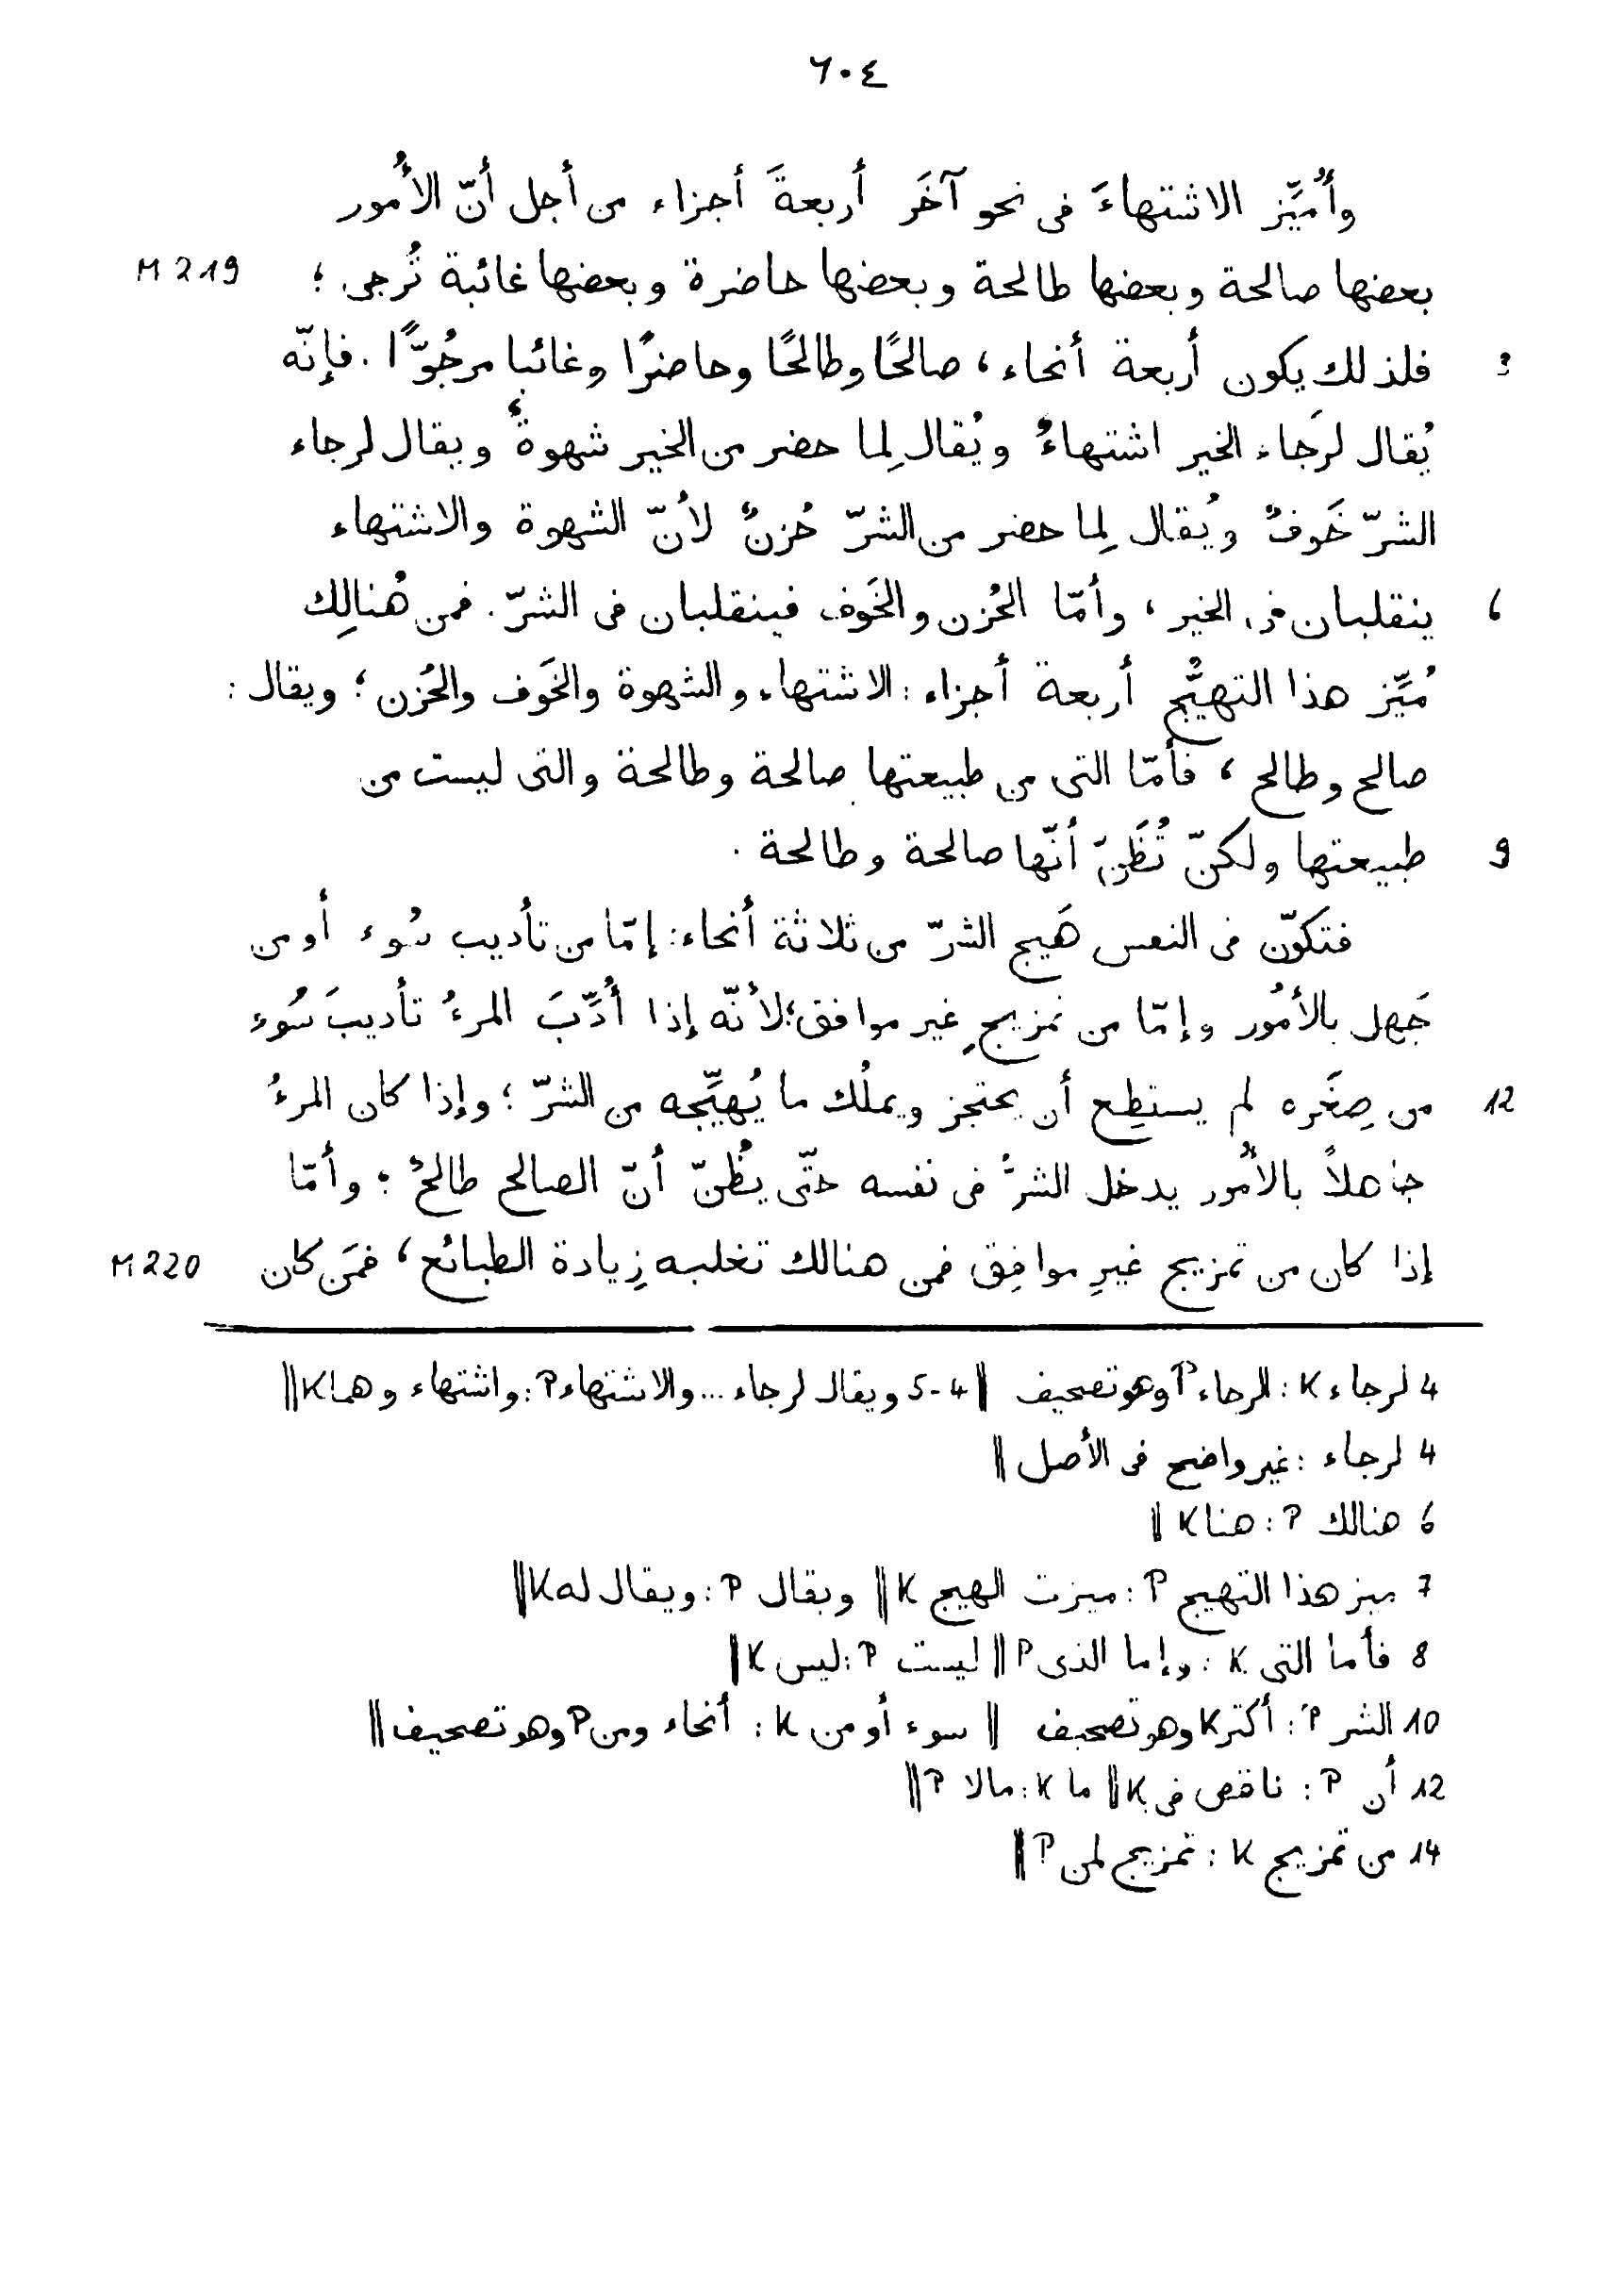 ٦٠٤
وأُميِّز الاشتهاءَ فى نحو آخَر أربعةَ أجزاء من أجل أنّ الأُمور
بعضها صالحة وبعضها طالحة وبعضها حاضرة وبعضها غائبة تُرجى ؛ M 219
3 فلذلك يكون أربعة أنحاء ، صالحًا وطالحًا وحاضرًا وغائبا مرجُوًّا . فإنّه
يُقال لرَجاء الخير اشتهاءٌ ويُقال لِما حضر من الخير شهوةٌ ويقال لرجاء
الشرّ خَوفٌ ويُقال لِما حضر من الشرّ حُزنٌ لأنّ الشهوة والاشتهاء
6 ينقلبان فى الخير ، وأمّا الحُزن والخَوف فينقلبان فى الشرّ . فمن هُنالِك
مُيِّز هذا التهيُّج أربعة أجزاء : الاشتهاء والشهوة والخَوف والحُزن ؛ ويقال :
صالح وطالح ، فأمّا التى من طبيعتها صالحة وطالحة والتى ليست من
9 طبيعتها ولكنّ تُظَنّ أنّها صالحة وطالحة .
فتكوّن فى النفس هَيج الشرّ من ثلاثة أنحاء : إمّا من تأديب سُوء أو من
جَهل بالأمُور وإمّا من تمزيجٍ غير موافق ؛ لأنّه إذا أُدِّبَ المرءُ تأديبَ سُوء
12 من صِغَره لم يستطِع أن يحتجز ويملُك ما يُهيِّجه من الشرّ ؛ وإذا كان المرءُ
جاهلاً بالأُمور يدخل الشرُّ فى نفسه حتّى يظُنّ أنّ الصالح طالحٌ ؛ وأمّا
إذا كان من تمزيج غيرِ موافِق فمن هنالك تغلبه زِيادة الطبائع ، فمَن كان M 220
4 لرجاء K : الرجاء P وهو تصحيف || 4-5 ويقال لرجاء ... والاشتهاء P : واشتهاء وهما K ||
4 لرجاء : غير واضح فى الأصل ||
6 هنالك P : هنا K ||
7 ميز هذا التهيج P : ميزت الهيج K || ويقال P : ويقال له K ||
8 فأما التى K : وإما الذى P || ليست P : ليس K ||
10 الشر P : أكثر K وهو تصحيف || سوء أو من K : أنحاء ومن P وهو تصحيف ||
12 أن P : ناقص فى K || ما K : مالا P ||
14 من تمزيج K : تمزيج لمن P ||